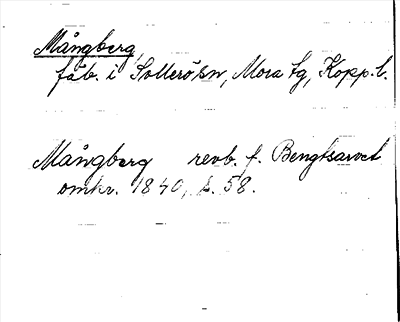 Mångberg
fäb. i Sollerö sn, Mora tg, Kopp. l.
Mångberg revb. f. Bengtsarvet
omkr. 1840, s. 58.